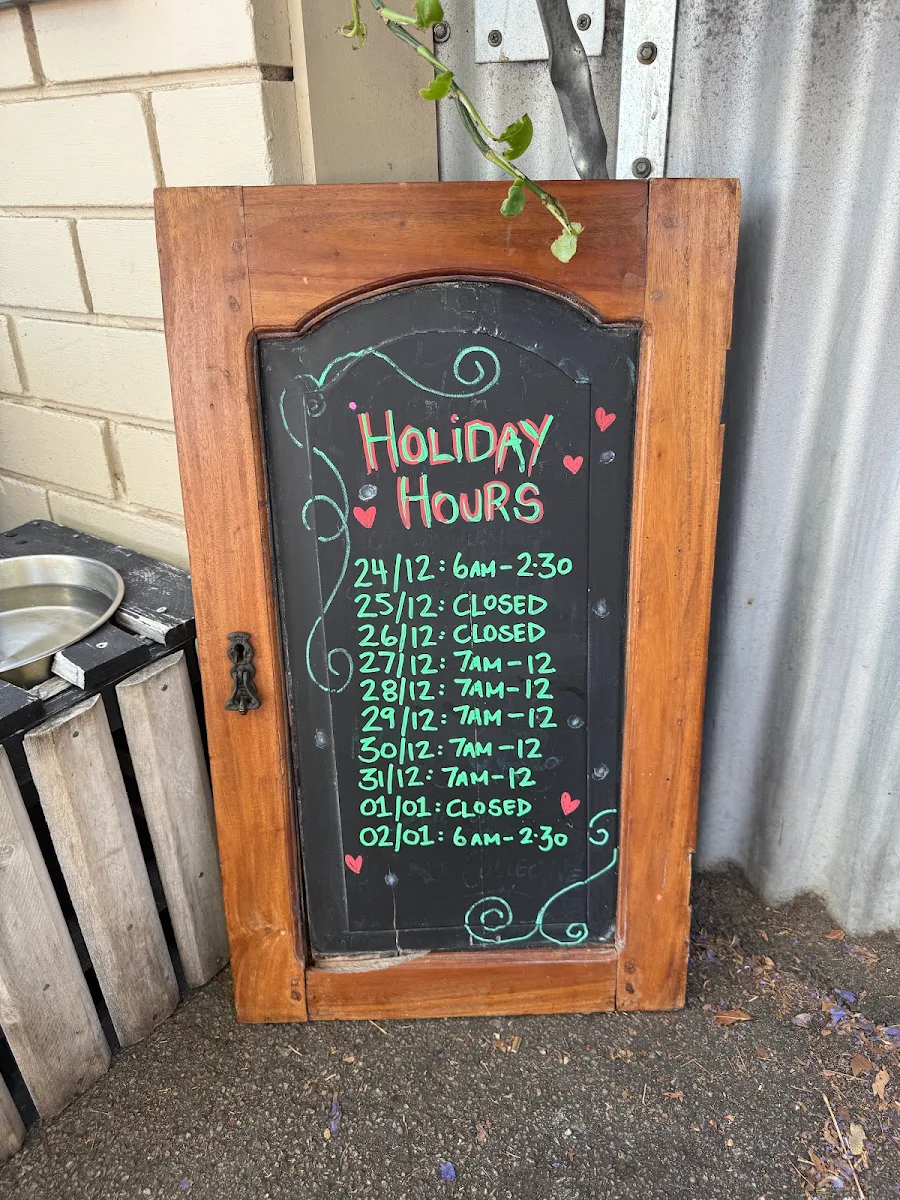 HOLIDAY
HOURS
24/12: 6AM-2·30
25/12: CLOSED
26/12: CLOSED
27/12: 7AM-12
28/12: 7AM-12
29/12: 7AM-12
30/12: 7AM-12
31/12: 7AM-12
01/01: CLOSED
02/01: 6AM-2·30